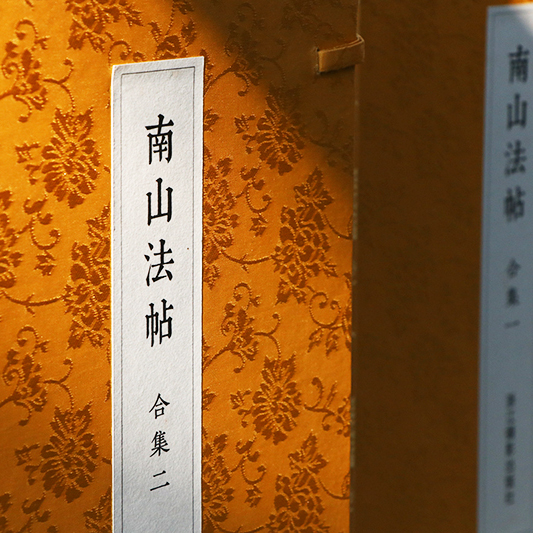 南山法帖
合集二
南山法帖
合集一